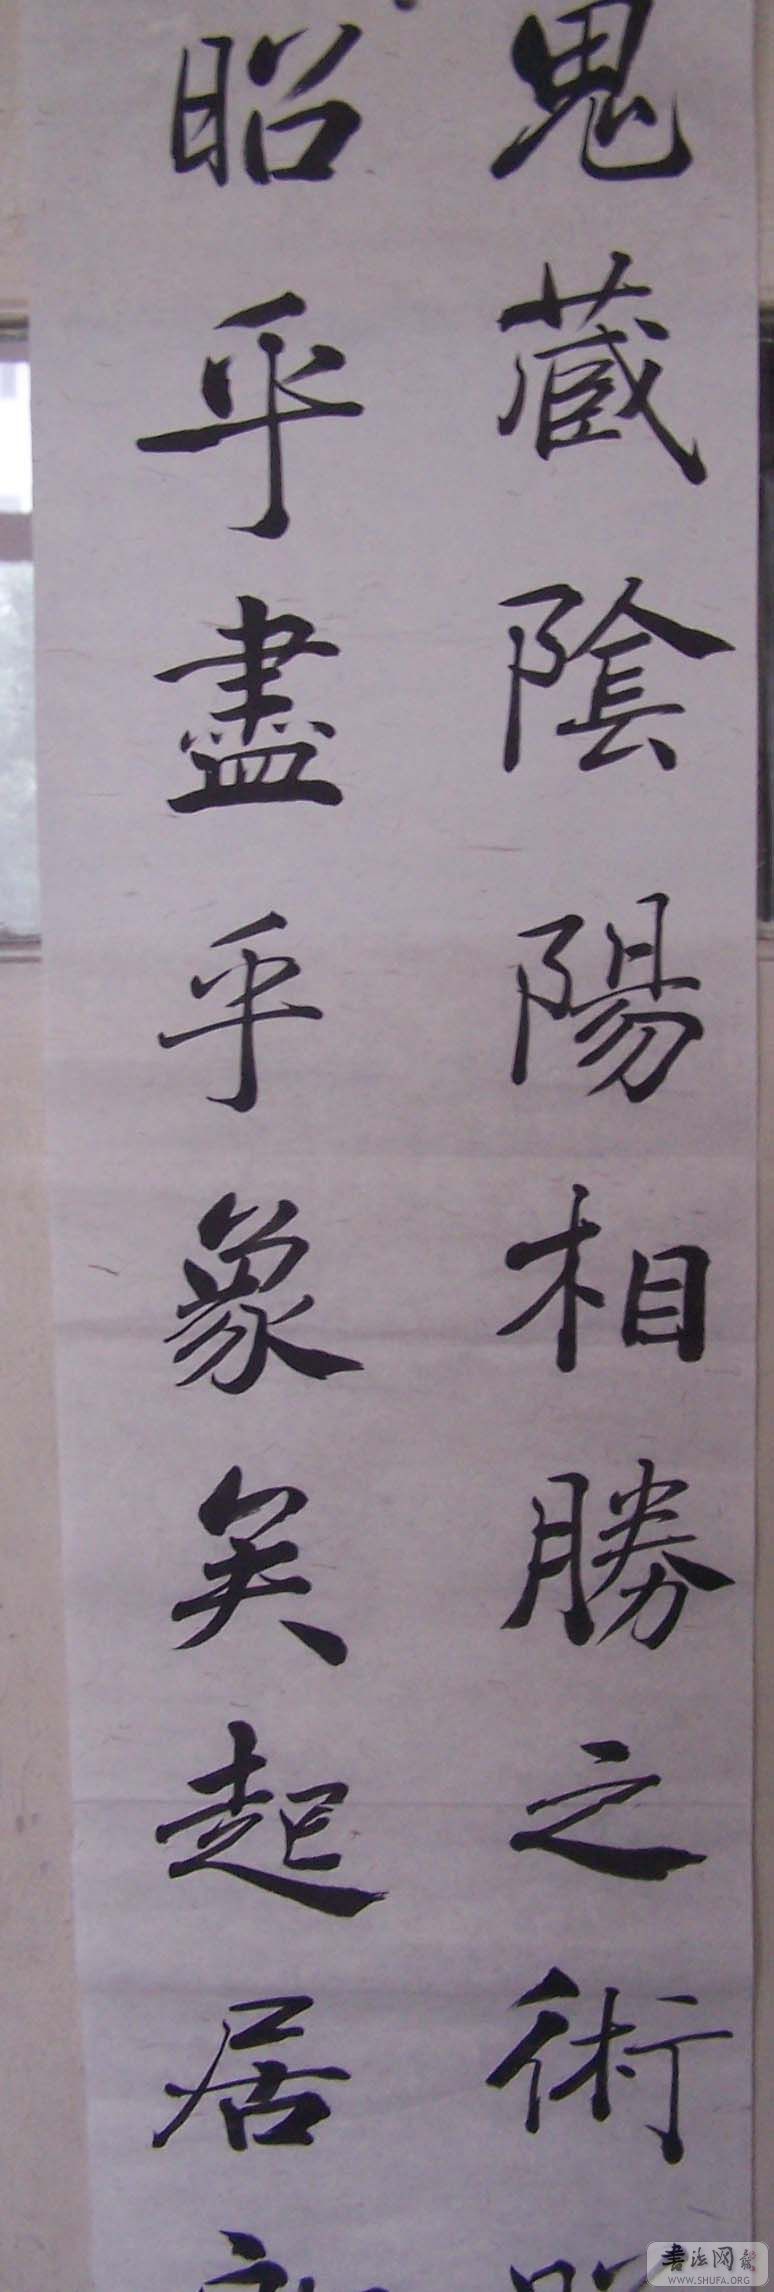 鬼藏陰陽相勝之術
昭乎盡乎象矣起居
書法网
WWW.SHUFA.ORG